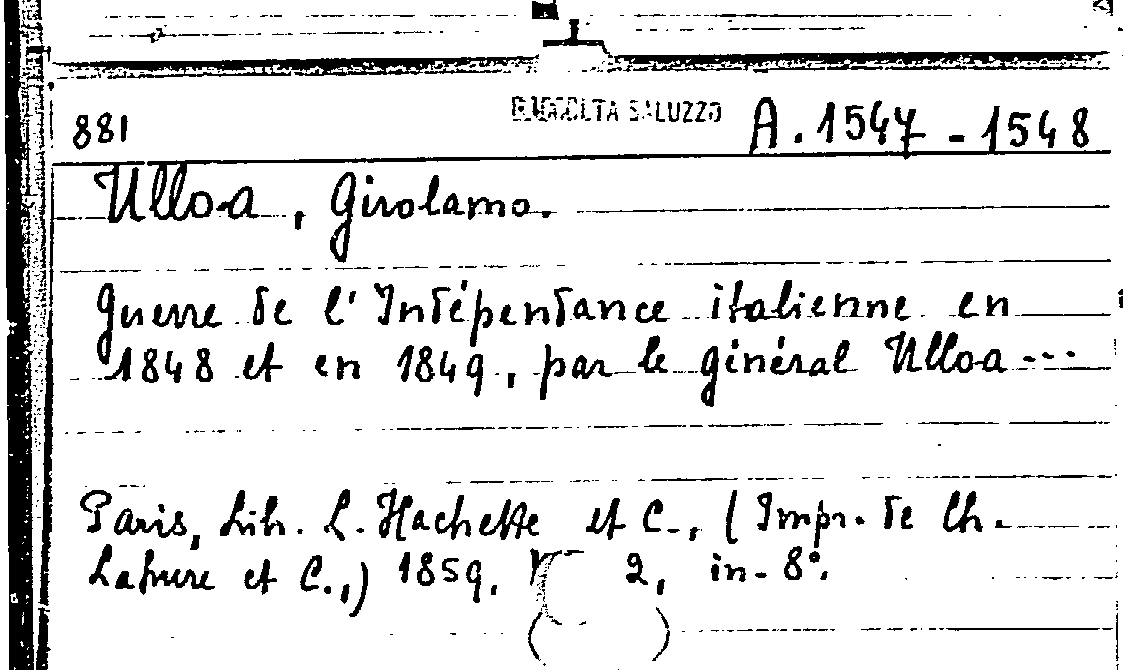 881 RACCOLTA SALUZZO A. 1547 - 1548
Ulloa, Girolamo.
Guerre de l'Indépendance italienne en
1848 et en 1849, par le général Ulloa ---
Paris, Lib. L. Hachette et C., (Impr. de Ch.
Lahure et C.,) 1859. 2, in-8°.